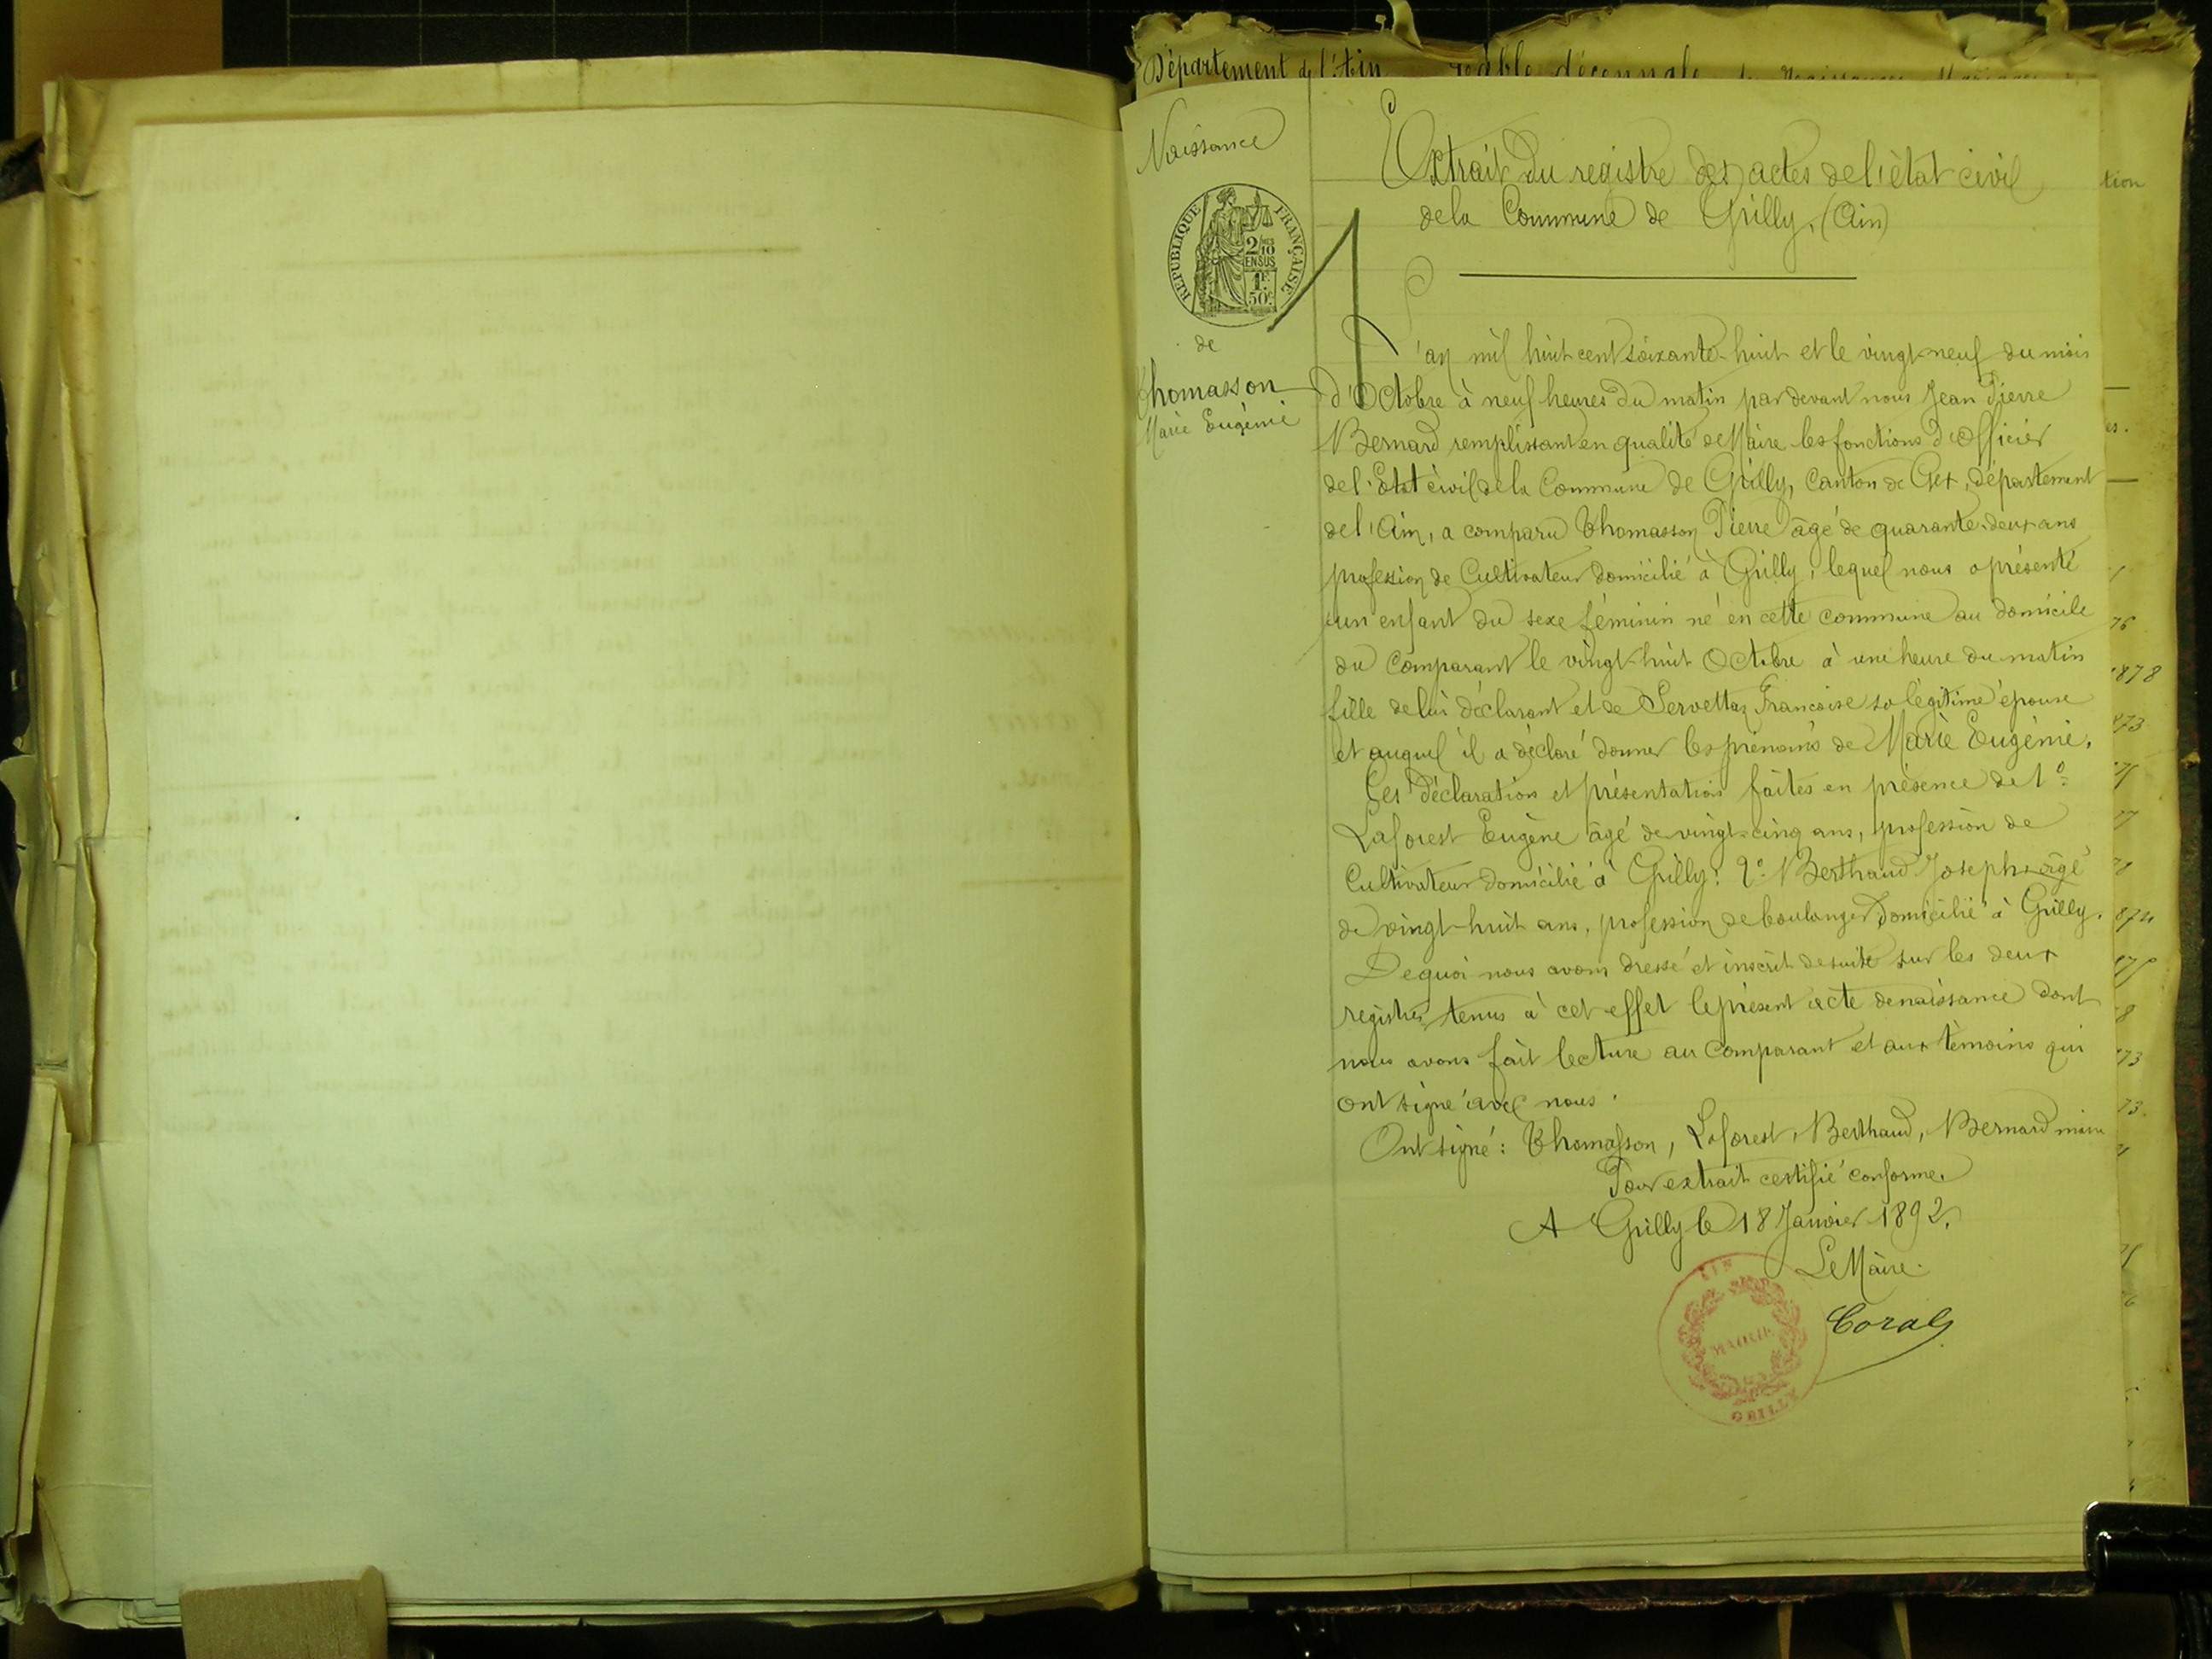 Département de l'Ain
Naissance
RÉPUBLIQUE FRANÇAISE
2/10 EN SUS
1F 50c
de
Thomasson
Marie Eugénie
Extrait du registre des actes de l'état civil
de la Commune de Grilly. (Ain)
L'an mil huit cent soixante-huit et le vingt-neuf du mois
d'Octobre à neuf heures du matin par devant nous Jean Pierre
Bernard remplissant en qualité de Maire les fonctions d'Officier
de l'Etat civil de la Commune de Grilly, Canton de Gex, département
de l'Ain, a comparu Thomasson Pierre âgé de quarante-deux ans
profession de Cultivateur domicilié à Grilly, lequel nous a présenté
un enfant du sexe féminin né en cette commune au domicile
du Comparant le vingt-huit Octobre à une heure du matin
fille de lui déclarant et de Servettaz Françoise sa légitime épouse
et auquel il a déclaré donner les prénoms de Marie Eugénie.
Ces déclaration et présentation faites en présence de 1º
Laforest Eugène âgé de vingt-cinq ans, profession de
Cultivateur domicilié à Grilly: 2º Berthaud Joseph âgé
de vingt-huit ans, profession de boulanger domicilié à Grilly.
De quoi nous avons dressé et inscrit de suite sur les deux
registres tenus à cet effet le présent acte de naissance dont
nous avons fait lecture au Comparant et aux témoins qui
ont signé avec nous.
Ont signé: Thomasson, Laforest, Berthaud, Bernard maire
Pour extrait certifié conforme.
A Grilly le 18 Janvier 1892.
Le Maire.
MAIRIE
AIN
GRILLY
tion
1878